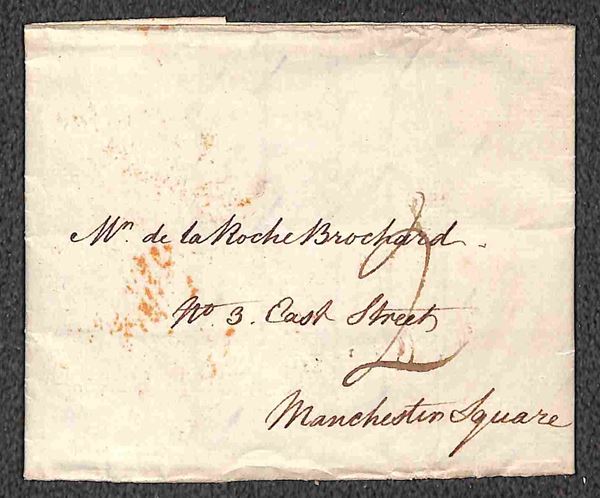 Mr. de la Roche Brochard.
No. 3. East Street
2
Manchester Square